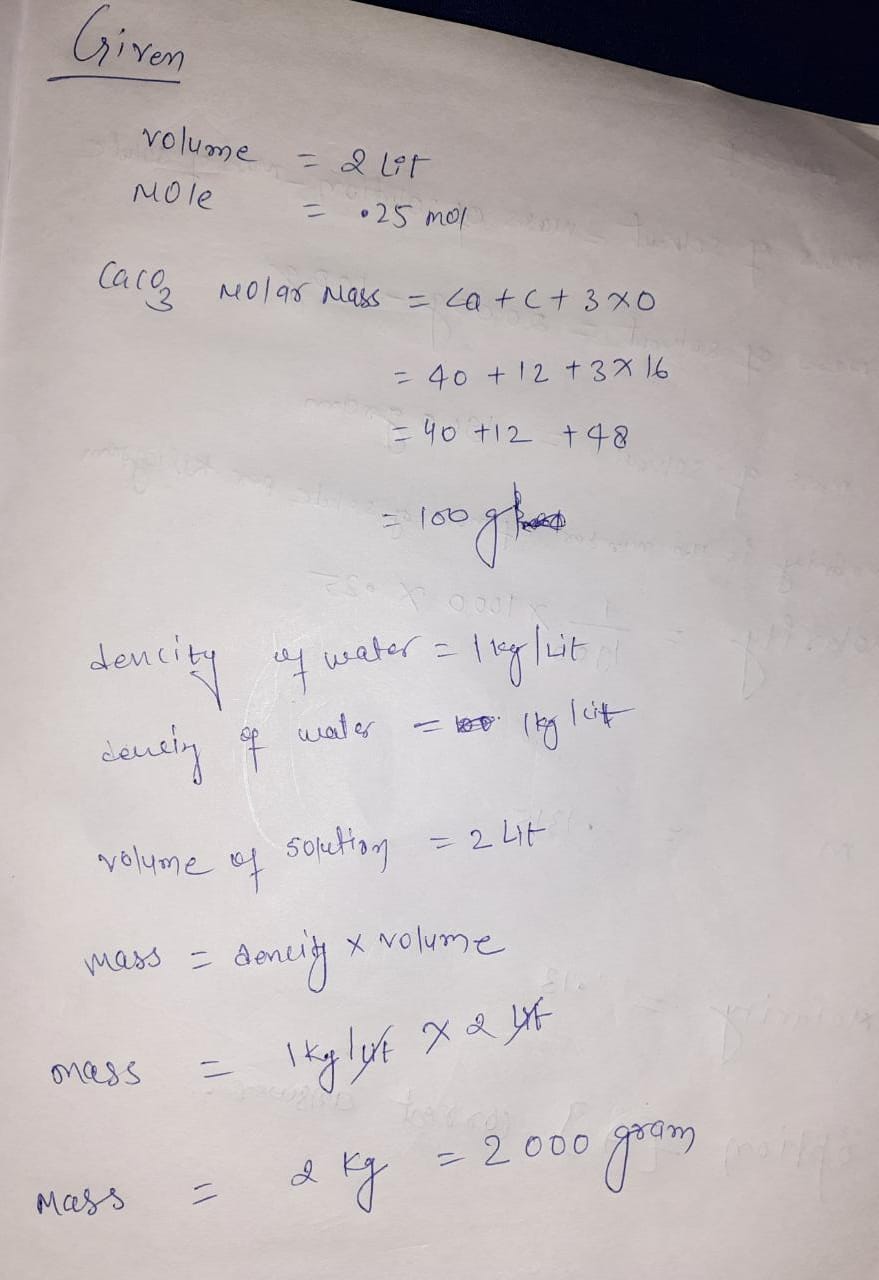 Given
volume = 2 Lit
Mole = .25 mol
CaCO3 Molar Mass = Ca + C + 3 × O
= 40 + 12 + 3 × 16
= 40 + 12 + 48
= 100 g
dencity of water = 1 kg/Lit
dencity of water = 1 kg/Lit
volume of solution = 2 Lit
Mass = dencity × volume
mass = 1 kg/Lit × 2 Lit
Mass = 2 kg = 2000 gram